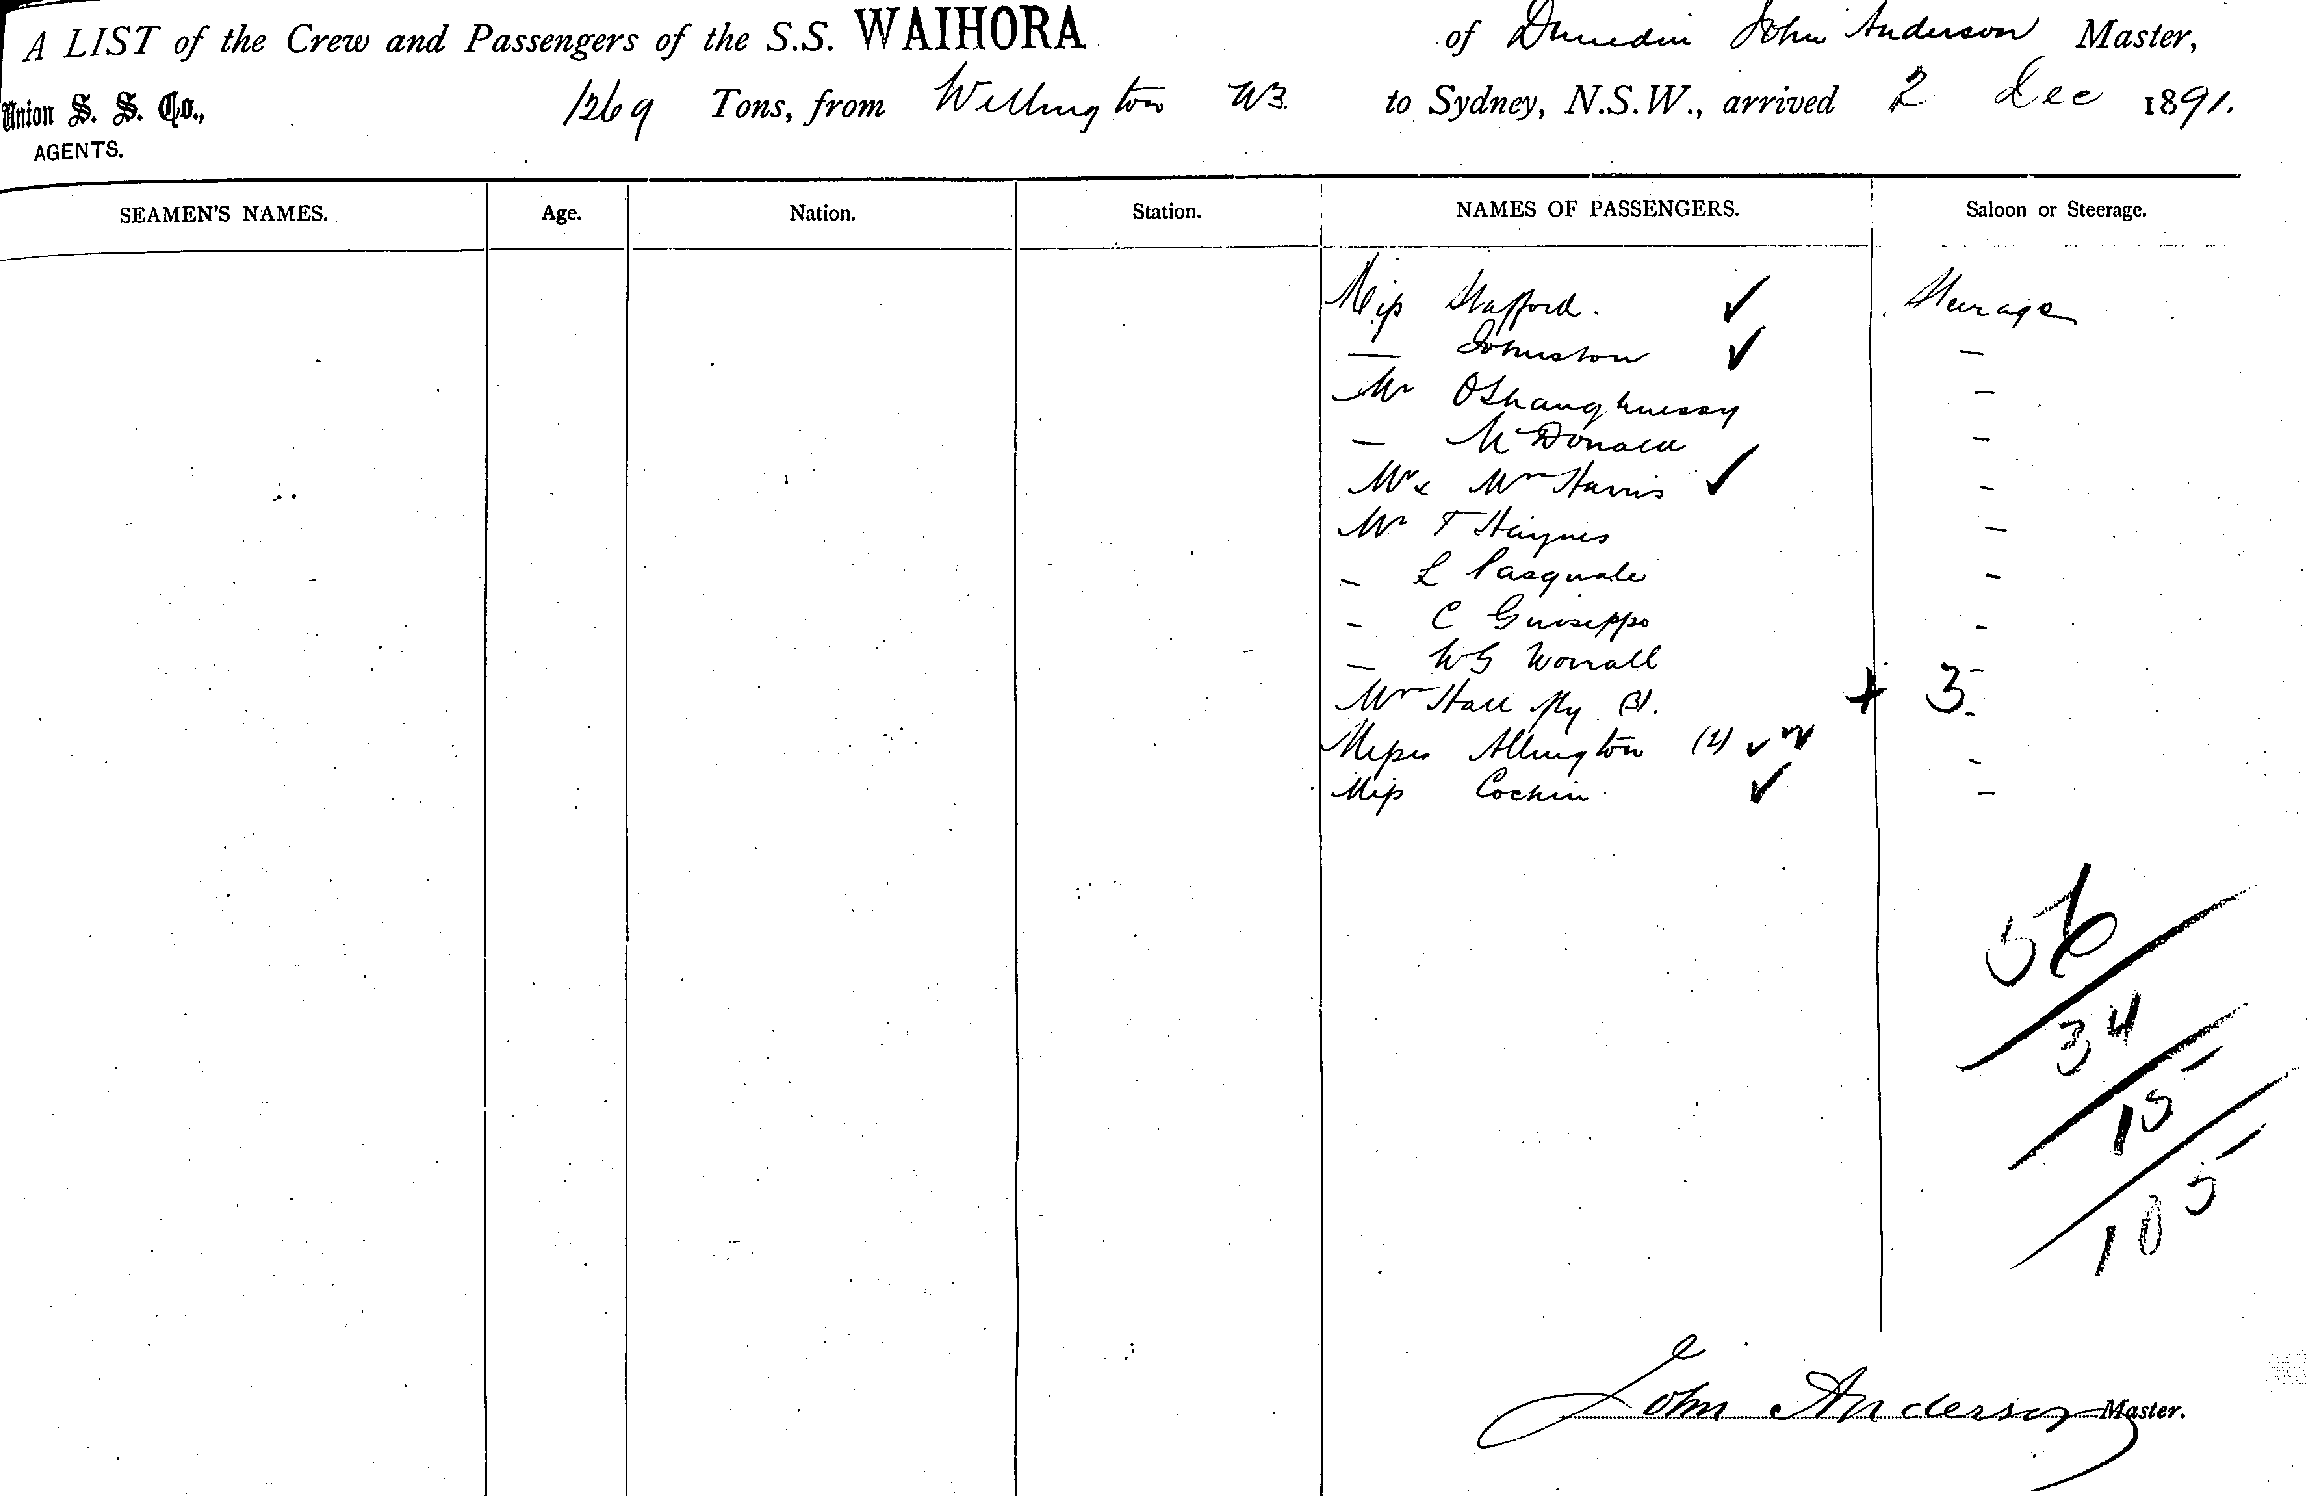 A LIST of the Crew and Passengers of the S.S. WAIHORA of Dunedin John Anderson Master,
Union S. S. Co., 1269 Tons, from Wellington NZ to Sydney, N.S.W., arrived 2 Dec 1891.
AGENTS.
SEAMEN'S NAMES. Age. Nation. Station. NAMES OF PASSENGERS. Saloon or Steerage.
Miss Stafford. ✓ Steerage
— Johnston ✓ —
Mr OShaughnessy —
— McDonald —
Mr & Mrs Harris ✓ —
Mr T Haynes —
— L Pasquale —
— C Guiseppe —
— W G Worrall —
Mrs Hall fly (3). + 3 —
Misses Allington (2) ✓ —
Miss Cochin. ✓ —
56
34
15
105
John Anderson Master.